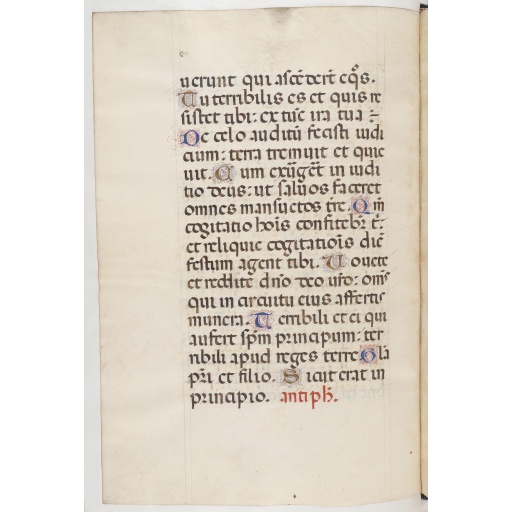 uerunt qui ascēdert̄ eq̄os.
Tu terribilis es et quis re
sistet tibi: ex tūc ira tua
De celo auditū fecisti iudi
cium: terra tremuit et quie
uit. Cum exurgēt in iudi
tio deus: ut saluos faceret
omnes mansuetos tr̄e. Qm̄
cogitatio hoīs confitebr̄ t̄:
et reliquie cogitatiōis diē
festum agent tibi. Uouete
et reddite dn̄o deo ur̄o: om̄s
qui in circuitu eius affertis
munera. Terribili et ei qui
aufert sp̄m principum: ter
ribili apud reges terre Gl̄a
pr̄i et filio. Sicut erat in
principio. antiph̄.